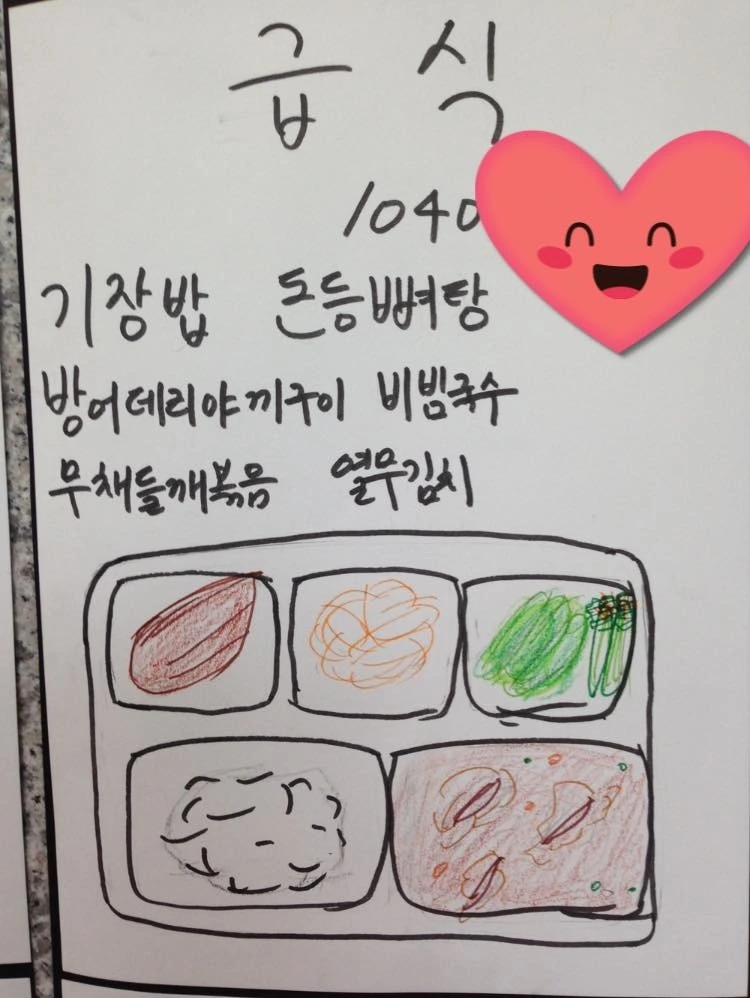 급식
1040
기장밥 돈등뼈탕
방어데리야끼구이 비빔국수
무채들깨볶음 열무김치